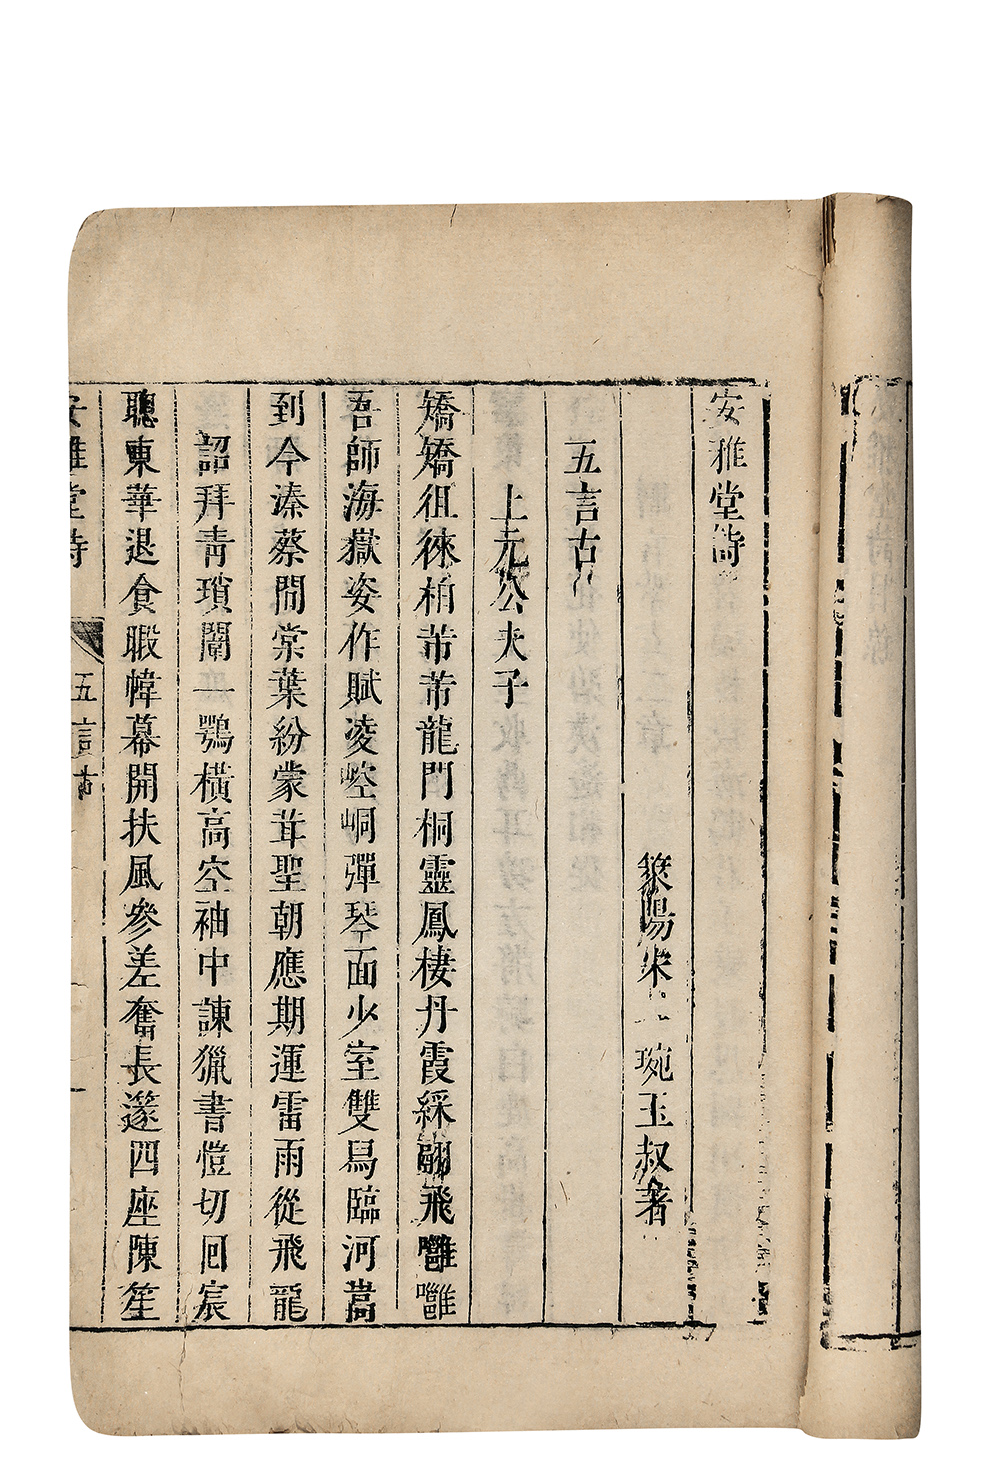 安雅堂詩
萊陽宋 琬玉叔著
五言古
上元公夫子
矯矯徂徠柏芾芾龍門桐靈鳳棲丹霞綵翮飛雝雝
吾師海嶽姿作賦凌崆峒彈琴面少室雙舃臨河嵩
到今溱蔡間棠葉紛蒙茸聖朝應期運雷雨從飛龍
詔拜青瑣闥一鶚橫高空袖中諫獵書愷切回宸
聰東華退食暇幃幕開扶風參差奮長遂四座陳笙
安雅堂詩 五言古 一